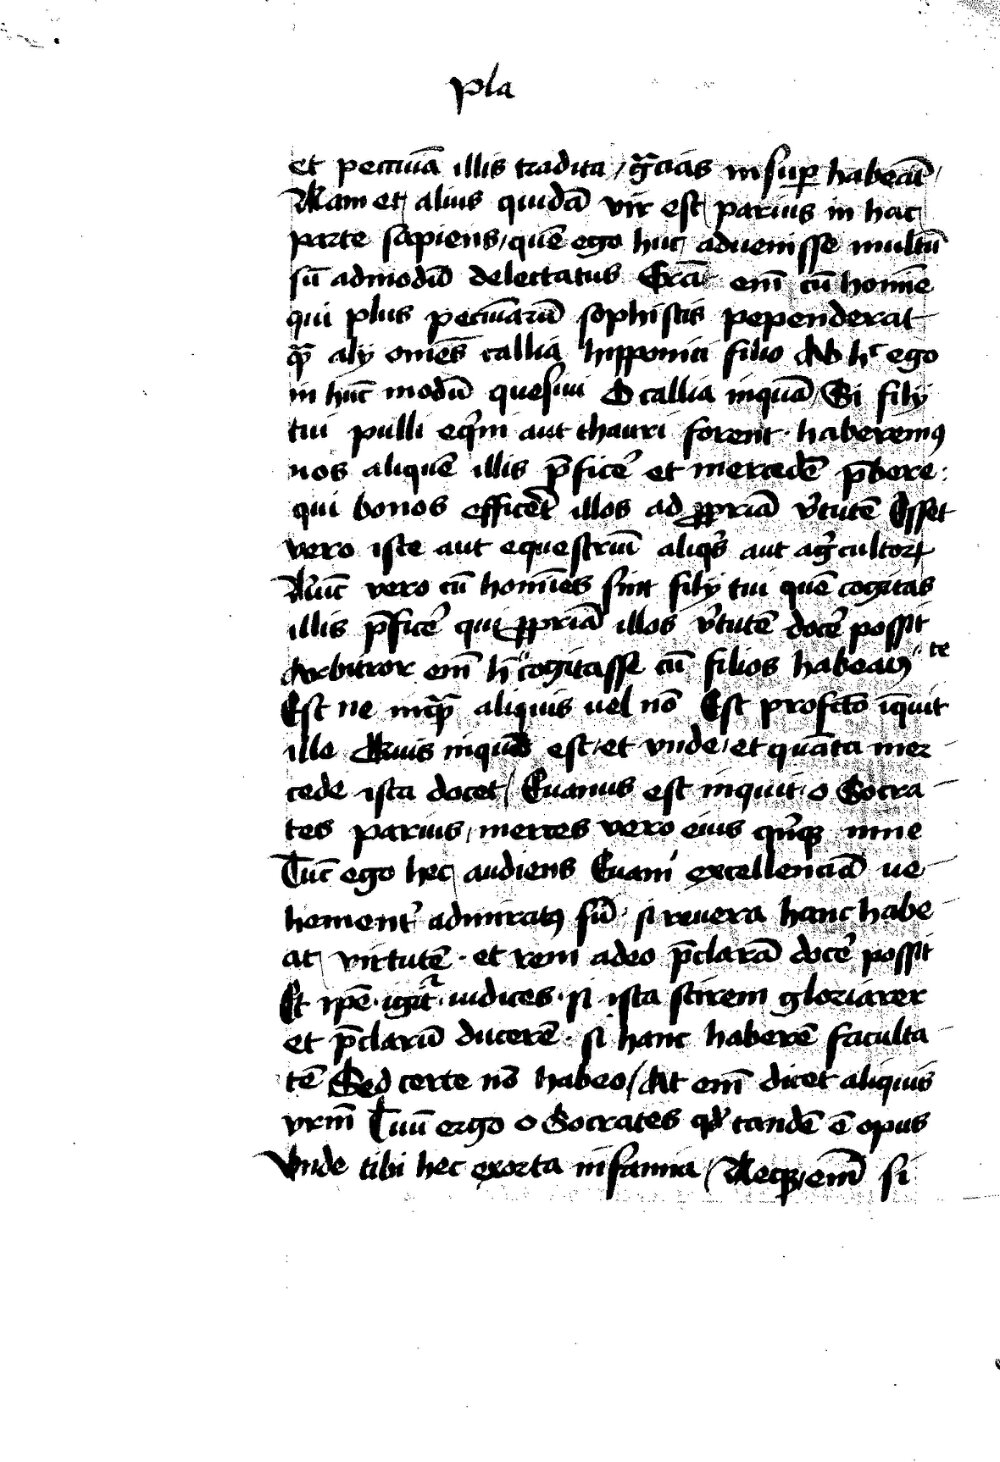 pla
et pecuniā illis tradita / gr̄acias insuꝑ habeāt /
Nam et aliuis quidā vir est parius in hac
parte sapiens / quē ego huc aduenisse multū
sū admodū delectatus Erā enī cū homīe
qui plus pecuniarū sophistis pependerat
qꝫ̄ alij omēs callia hipponici filio Ab hͨ ego
in hūc modū quesiui O callia inquā / Si filij
tui pulli eq̄rni aut thauri forent · haberemꝰ
nos aliquē illis p̄ficeͬ et mercedē p̄bere :
qui bonos efficeͬt illos ad ꝓpriā vͬtutē Esset
vero iste aut equestriū aliqͥs aut agͥcultorꝝ
Nūc vero cū homīes sint filij tui quē cogitas
illis p̄ficeͬ qui ꝓpriā illos vͬtutē doceͬ possit
Arbitror enī hͨ cogitasse te cū filios habeas
Est ne inquā aliquis uel nō Est profcō īquit
ille Quis inquā est / et vnde / et quāta mer
cede ista docet / Euanus est inquit · o Socra
tes parius / merces vero eius qͥnqꝫ mine
Tūc ego hec audiens Euani excellenciā ue
hementͬ admiratꝰ sū · si reuera hanc habe
at virtutē · et rem adeo p̄clarā doceͬ possit
Et ip̄e · igitͬ · iudices · si ista scirem gloriarer
et p̄clarū ducerē · si hanc haberē faculta
tē Sed certe nō habeo / At enī dicet aliquis
vr̄m Tuū ergo o Socrates qͩ tandē ē opus
Vnde tibi hec exorta infamia / Neqꝫ enī si